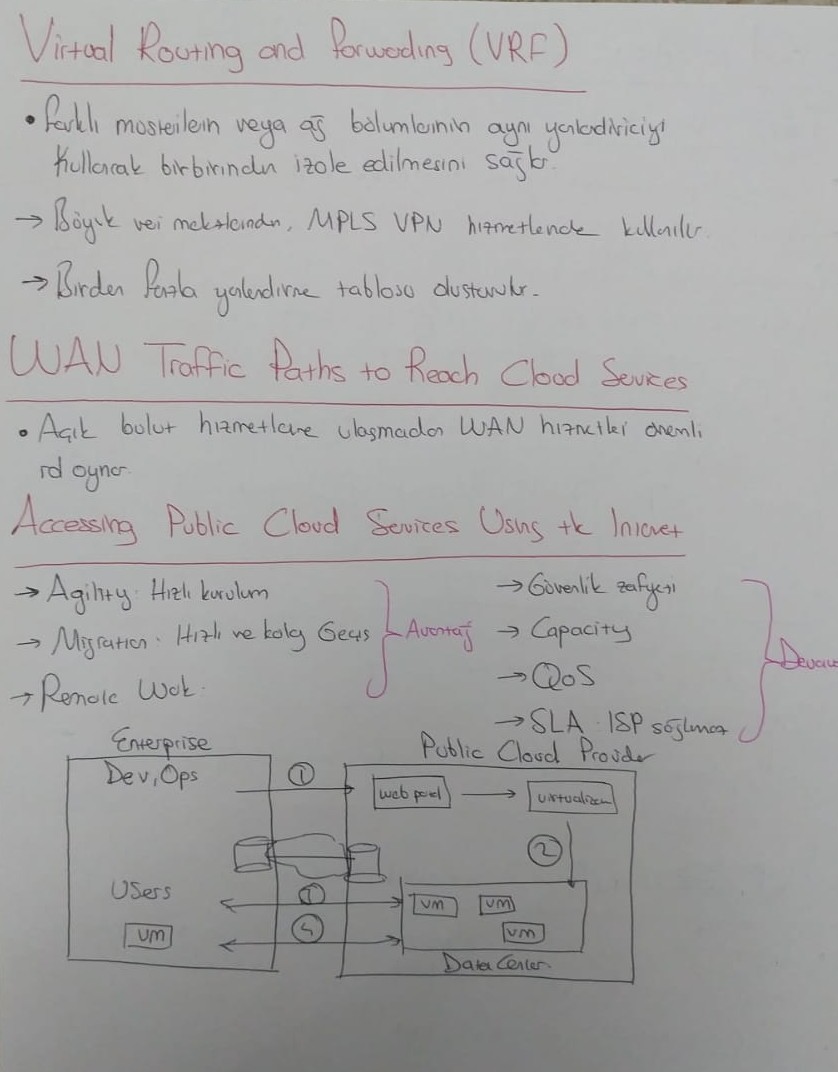 Virtual Routing and Forwading (VRF)
• Farklı müsteilein veya ağ bölümlerinin aynı yönlendiriciyi
Kullarak birbirinden izole edilmesini sağlar.
→ Büyük veri mekezlerinden, MPLS VPN hizmetlerinde kullanılır.
→ Birden fazla yönlendirme tablosu olusturulur.
WAN Traffic Paths to Reach Cloud Sevices
• Açık bulut hizmetlere ulaşmada WAN hizmetleri önemli
rol oynar
Accessing Public Cloud Services Using the Internet
→ Agility: Hızlı kurulum
→ Migration: Hızlı ve kolay Geçiş
→ Remote Wok.
Avantaj
→ Güvenlik zafiyeti
→ Capacity
→ QoS
→ SLA: ISP sözleşmesi
Enterprise
Dev, Ops
Users
VM
①
①
4
Public Cloud Provider
web panel →
②
VM VM
VM
Data Center